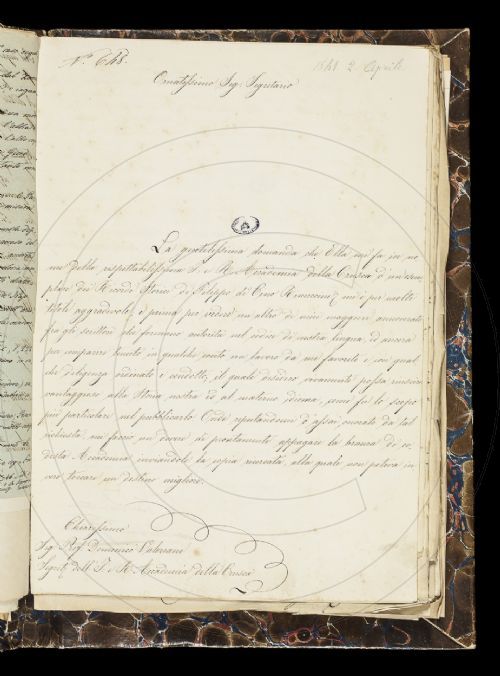 N.° 648.
1841 2 Aprile
Ornatissimo Sig. Segretario
La gentilissima domanda che Ella mi fa in no
me della rispettabilissima I. e R. Accademia della Crusca d'un esem
plare dei Ricordi Storici di Filippo di Cino Rinuccini, mi è per molti
titoli aggradevole, e prima per vedere un altro de' miei maggiori annoverato
fra gli scrittori che formano autorità nel codice di nostra lingua, ed ancora
per comparire tenuto in qualche conto un lavoro da me favorito e con qual
che diligenza ordinato e condotto, il quale desidero vivamente possa riuscire
vantaggioso alla Storia nostra ed al materno idioma, come fu lo scopo
più particolare nel pubblicarlo. Onde reputandomi d'assai onorato da tal
richiesta, mi faccio un dovere di prontamente appagare la brama di co
desta Accademia inviandole la copia ricercata, alla quale non poteva in
vero toccare un destino migliore.
Chiarissimo
Sig. Prof. Domenico Valeriani
Segret. dell'I. e R. Accademia della Crusca